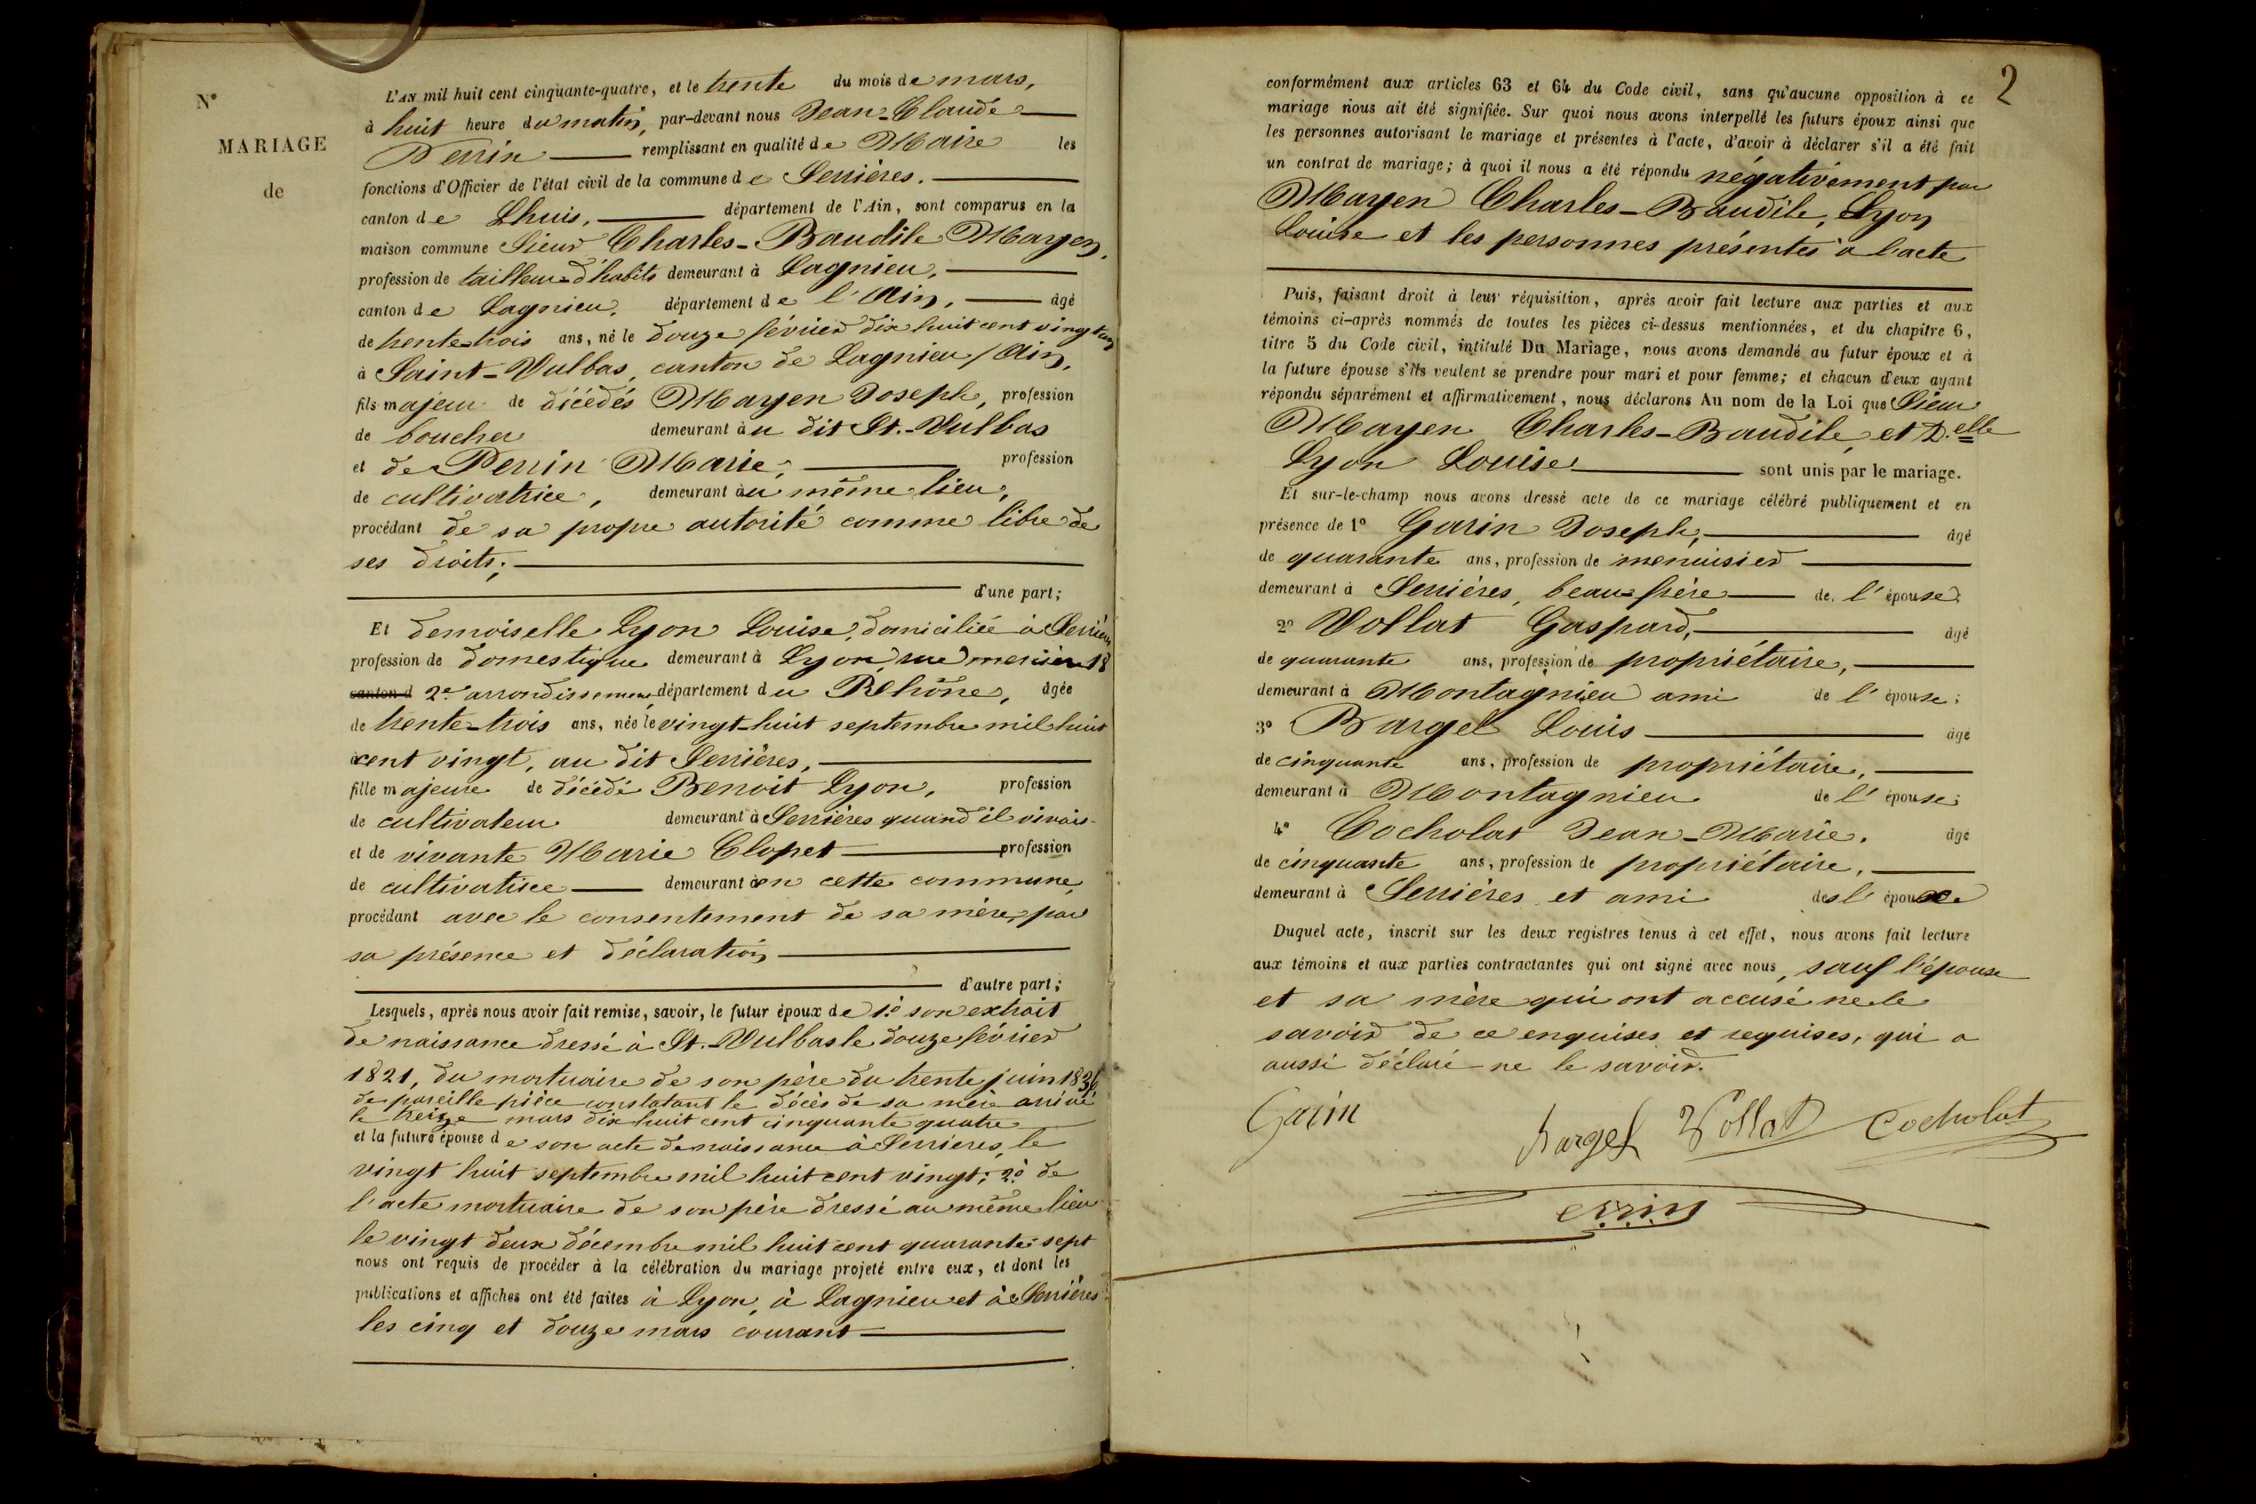 N°
MARIAGE
de
L'AN mil huit cent cinquante-quatre, et le trente du mois de mars,
à huit heure du matin, par-devant nous Jean-Claude
Perrin remplissant en qualité de Maire les
fonctions d'Officier de l'état civil de la commune de Serrières.
canton de Lhuis, département de l'Ain, sont comparus en la
maison commune Sieur Charles-Baudile Mayen,
profession de tailleur d'habits demeurant à Lagnieu,
canton de Lagnieu, département de l'Ain, âgé
de trente-trois ans, né le douze février dix huit cent vingt un
à Saint-Vulbas, canton de Lagnieu / Ain,
fils majeur de décédés Mayen Joseph, profession
de boucher demeurant au dit St.-Vulbas
et de Perrin Marie, profession
de cultivatrice, demeurant au même lieu,
procédant de sa propre autorité comme libre de
ses droits;
d'une part;
Et demoiselle Lyon Louise, domiciliée à Serrières
profession de domestique demeurant à Lyon, rue 18
canton d 2e arrondissement, département du Rhône, âgée
de trente-trois ans, née le vingt-huit septembre mil huit
cent vingt, au dit Serrières,
fille majeure de décédé Benoit Lyon, profession
de cultivateur demeurant à Serrières quand il vivait
et de vivante Marie Clopet profession
de cultivatrice demeurant en cette commune,
procédant avec le consentement de sa mère, par
sa présence et déclaration
d'autre part;
Lesquels, après nous avoir fait remise, savoir, le futur époux de 1° son extrait
de naissance dressé à St.-Vulbas le douze février
1821, du mortuaire de son père du trente juin 1836
de pareille pièce constatant le décès de sa mère arrivé
le treize mars dix huit cent cinquante quatre
et la future épouse de son acte de naissance à Serrieres, le
vingt huit septembre mil huit cent vingt; 2° de
l'acte mortuaire de son père dressé au même lieu
le vingt deux décembre mil huit cent quarante-sept
nous ont requis de procéder à la célébration du mariage projeté entre eux, et dont les
publications et affiches ont été faites à Lyon, à Lagnieu et à Serrières
les cinq et douze mars courant
2
conformément aux articles 63 et 64 du Code civil, sans qu'aucune opposition à ce
mariage nous ait été signifiée. Sur quoi nous avons interpellé les futurs époux ainsi que
les personnes autorisant le mariage et présentes à l'acte, d'avoir à déclarer s'il a été fait
un contrat de mariage; à quoi il nous a été répondu négativement par
Mayen Charles-Baudile, Lyon
Louise et les personnes présentes à l'acte
Puis, faisant droit à leur réquisition, après avoir fait lecture aux parties et aux
témoins ci-après nommés de toutes les pièces ci-dessus mentionnées, et du chapitre 6,
titre 5 du Code civil, intitulé Du Mariage, nous avons demandé au futur époux et à
la future épouse s'ils veulent se prendre pour mari et pour femme; et chacun d'eux ayant
répondu séparément et affirmativement, nous déclarons Au nom de la Loi que Sieur
Mayen Charles-Baudile, et D.elle
Lyon Louise sont unis par le mariage.
Et sur-le-champ nous avons dressé acte de ce mariage célébré publiquement et en
présence de 1° Garin Joseph, âgé
de quarante ans, profession de menuisier
demeurant à Serrières, beau-frère de l'épouse;
2° Vollat Gaspard, âgé
de quarante ans, profession de propriétaire,
demeurant à Montagnieu ami de l'épouse;
3° Bargel Louis âgé
de cinquante ans, profession de propriétaire,
demeurant à Montagnieu de l'épouse;
4° Cocholat Jean-Marie. âgé
de cinquante ans, profession de propriétaire,
demeurant à Serrières et ami de l'épouse
Duquel acte, inscrit sur les deux registres tenus à cet effet, nous avons fait lecture
aux témoins et aux parties contractantes qui ont signé avec nous, sauf l'épouse
et sa mère qui ont accusé ne le
savoir de ce enquises et requises, qui a
aussi déclaré ne le savoir.
Garin
Bargel Vollat Cocholat
Perrin